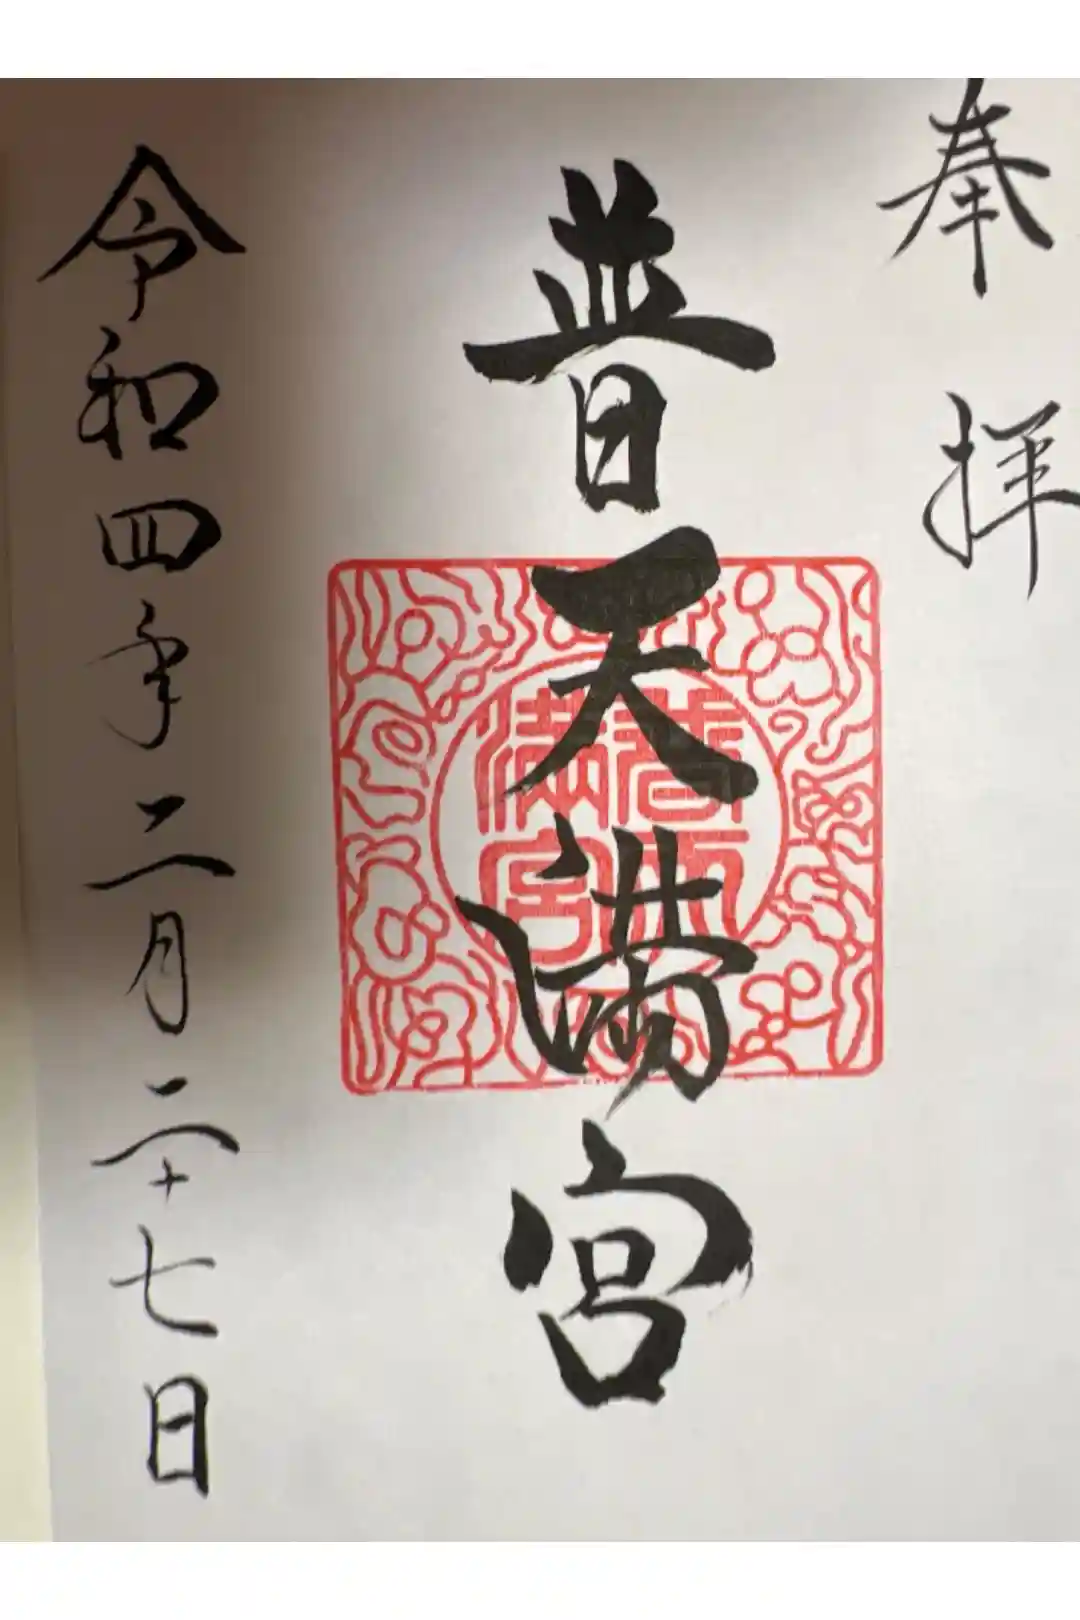 奉拝
普天満宮
普天
満宮
令和四年二月二十七日